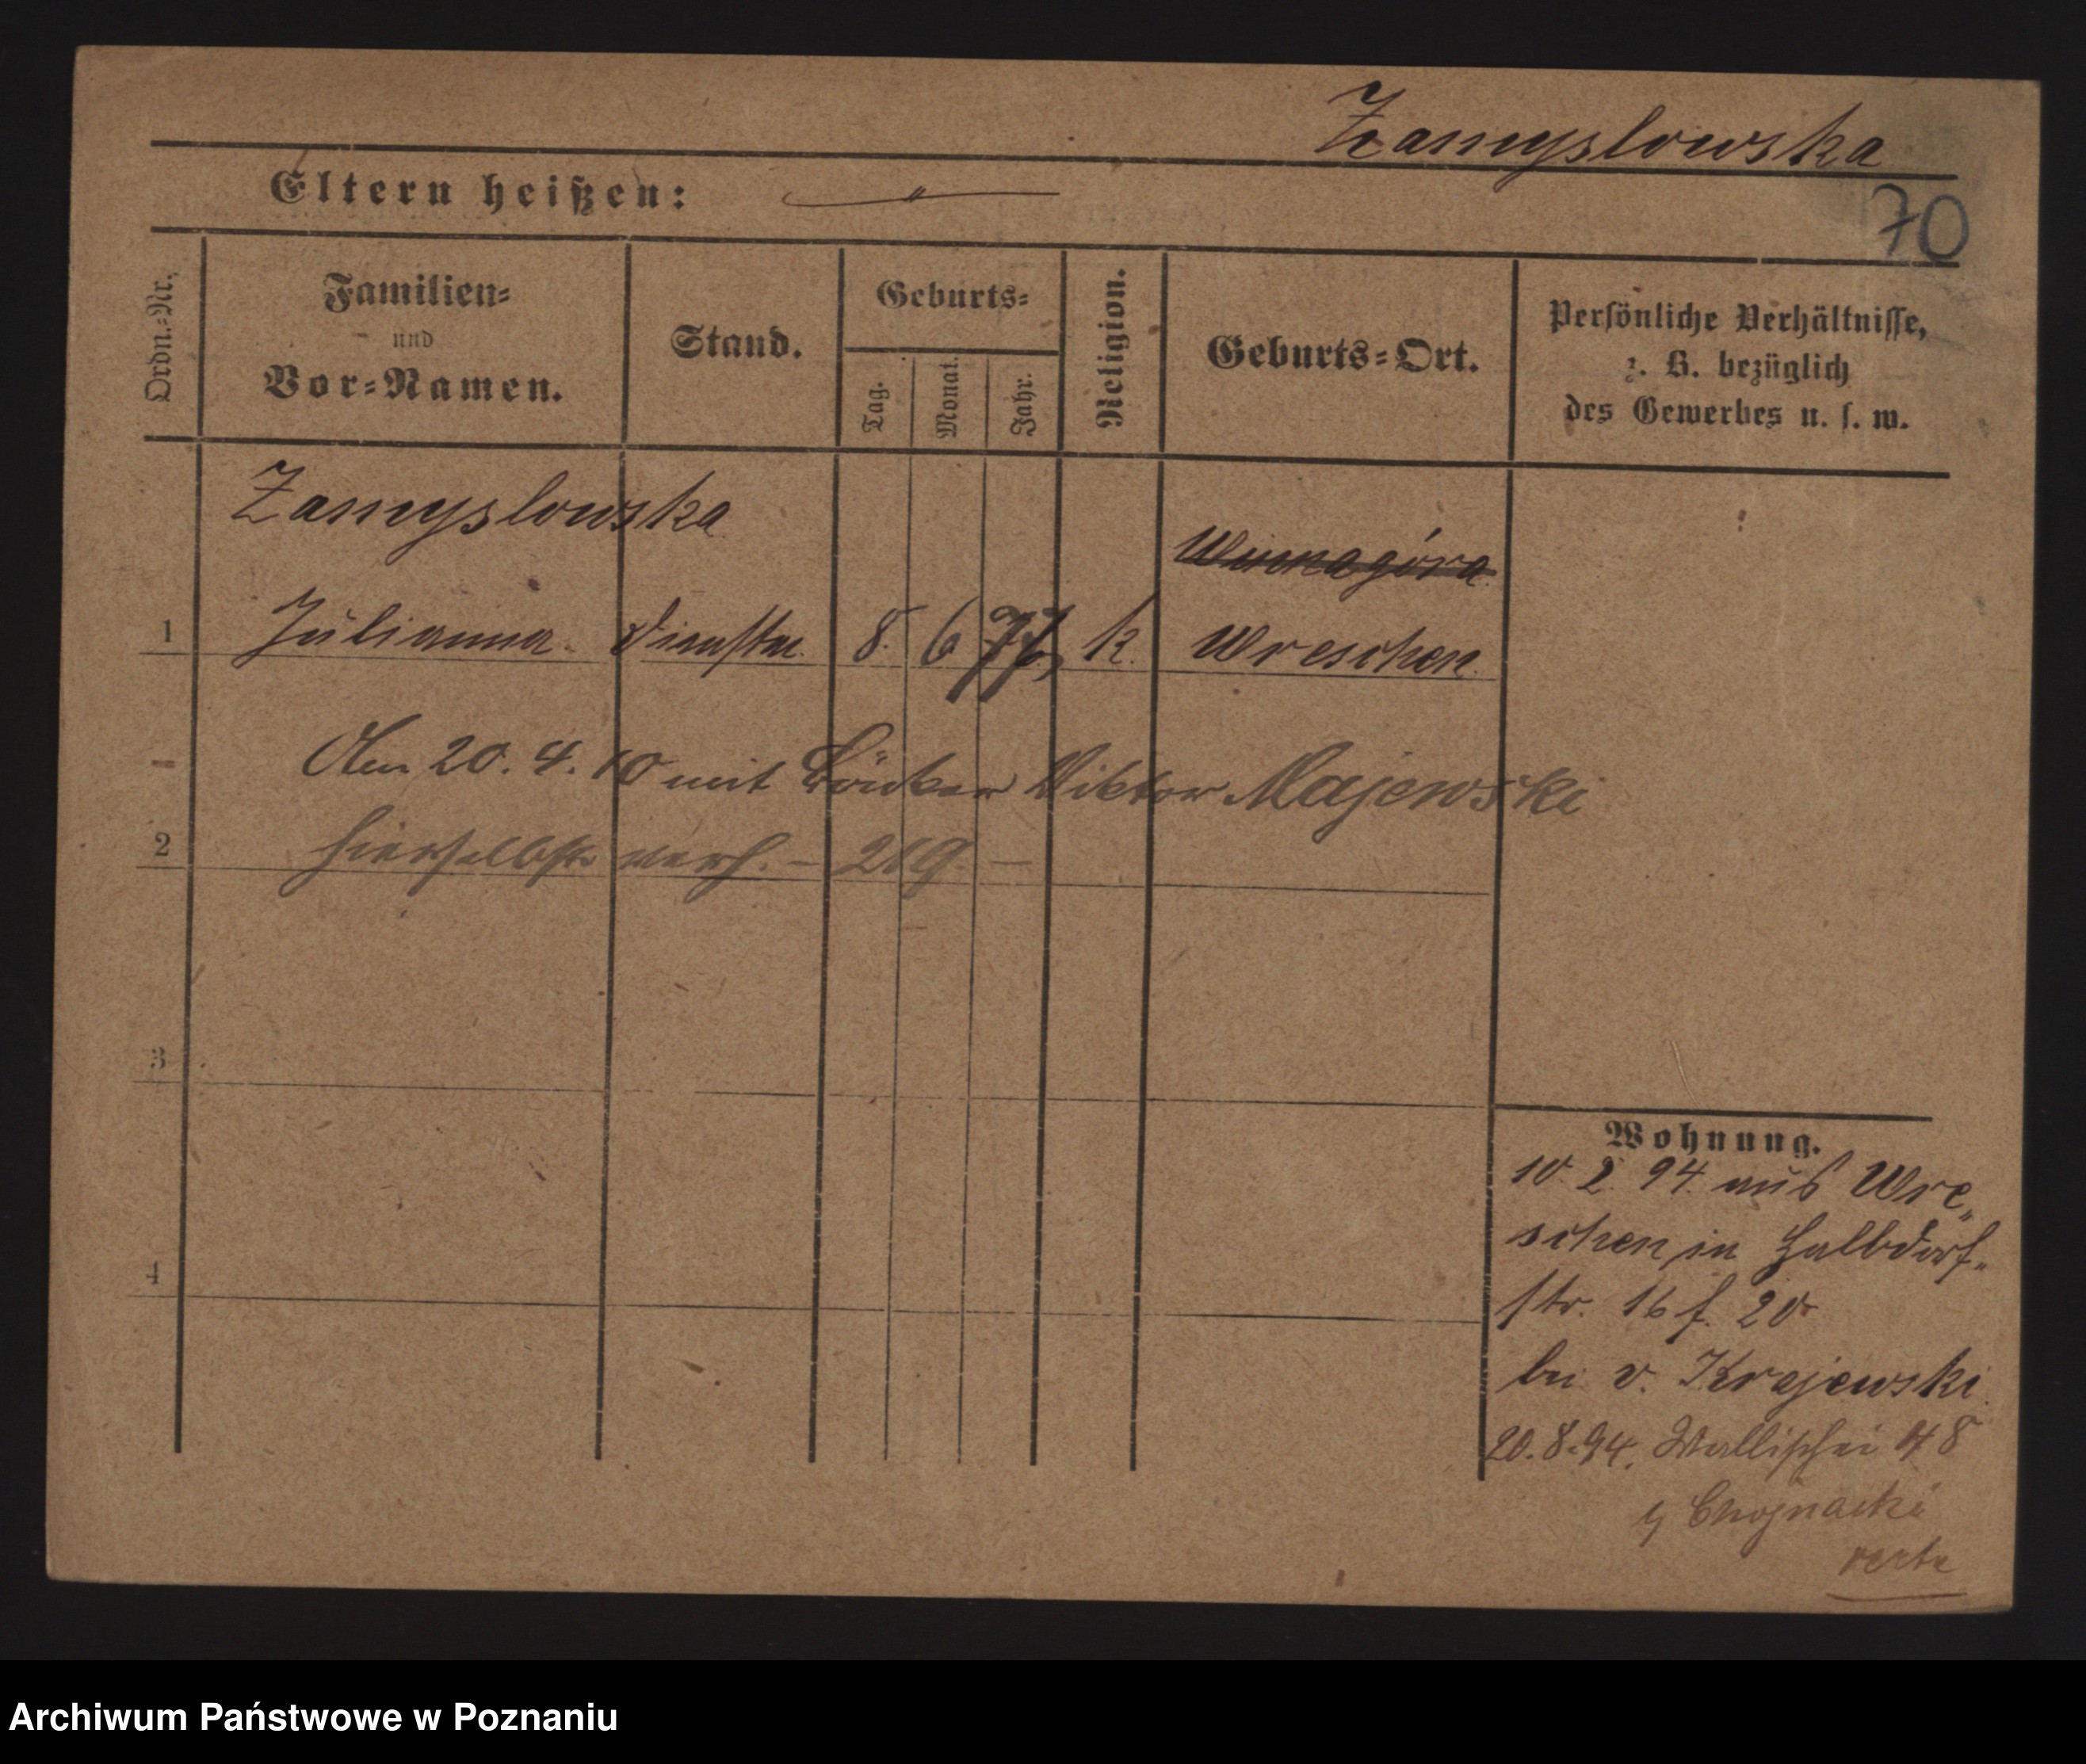 Zamyslowska
70
Eltern heißen: — " —
Ordn.-Nr.
Familien-
und
Vor-Namen.
Stand.
Geburts-
Tag.
Monat.
Jahr.
Religion.
Geburts-Ort.
Persönliche Verhältnisse,
z. B. bezüglich
des Gewerbes u. s. w.
Zamyslowska
Winnagóra
1 Julianna Dienstm. 8. 6 77, k. Wreschen.
Am 20. 4. 10 mit Viktor Majewski
2 hierselbst verh. — 219. —
3
4
Wohnung.
10. 2. 94. aus Wre„
schen in Halbdorf„
str. 16 f. 20
bei v. Krajewski.
20. 8. 94. Wallischei 48
Chojnacki
verte
Archiwum Państwowe w Poznaniu